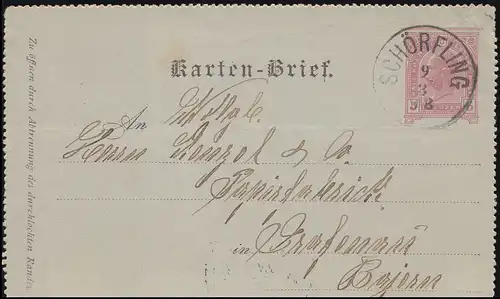 Zu öffnen durch Abtrennung des durchlochten Randes.
Karten-Brief.
SCHÖRFLING
9
3
An Wohlg.
Herrn & Co.
Papierfabrick
in Grafenau
Bajern